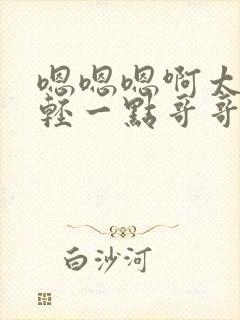 嗯嗯嗯啊太
輕一點哥哥
白沙河